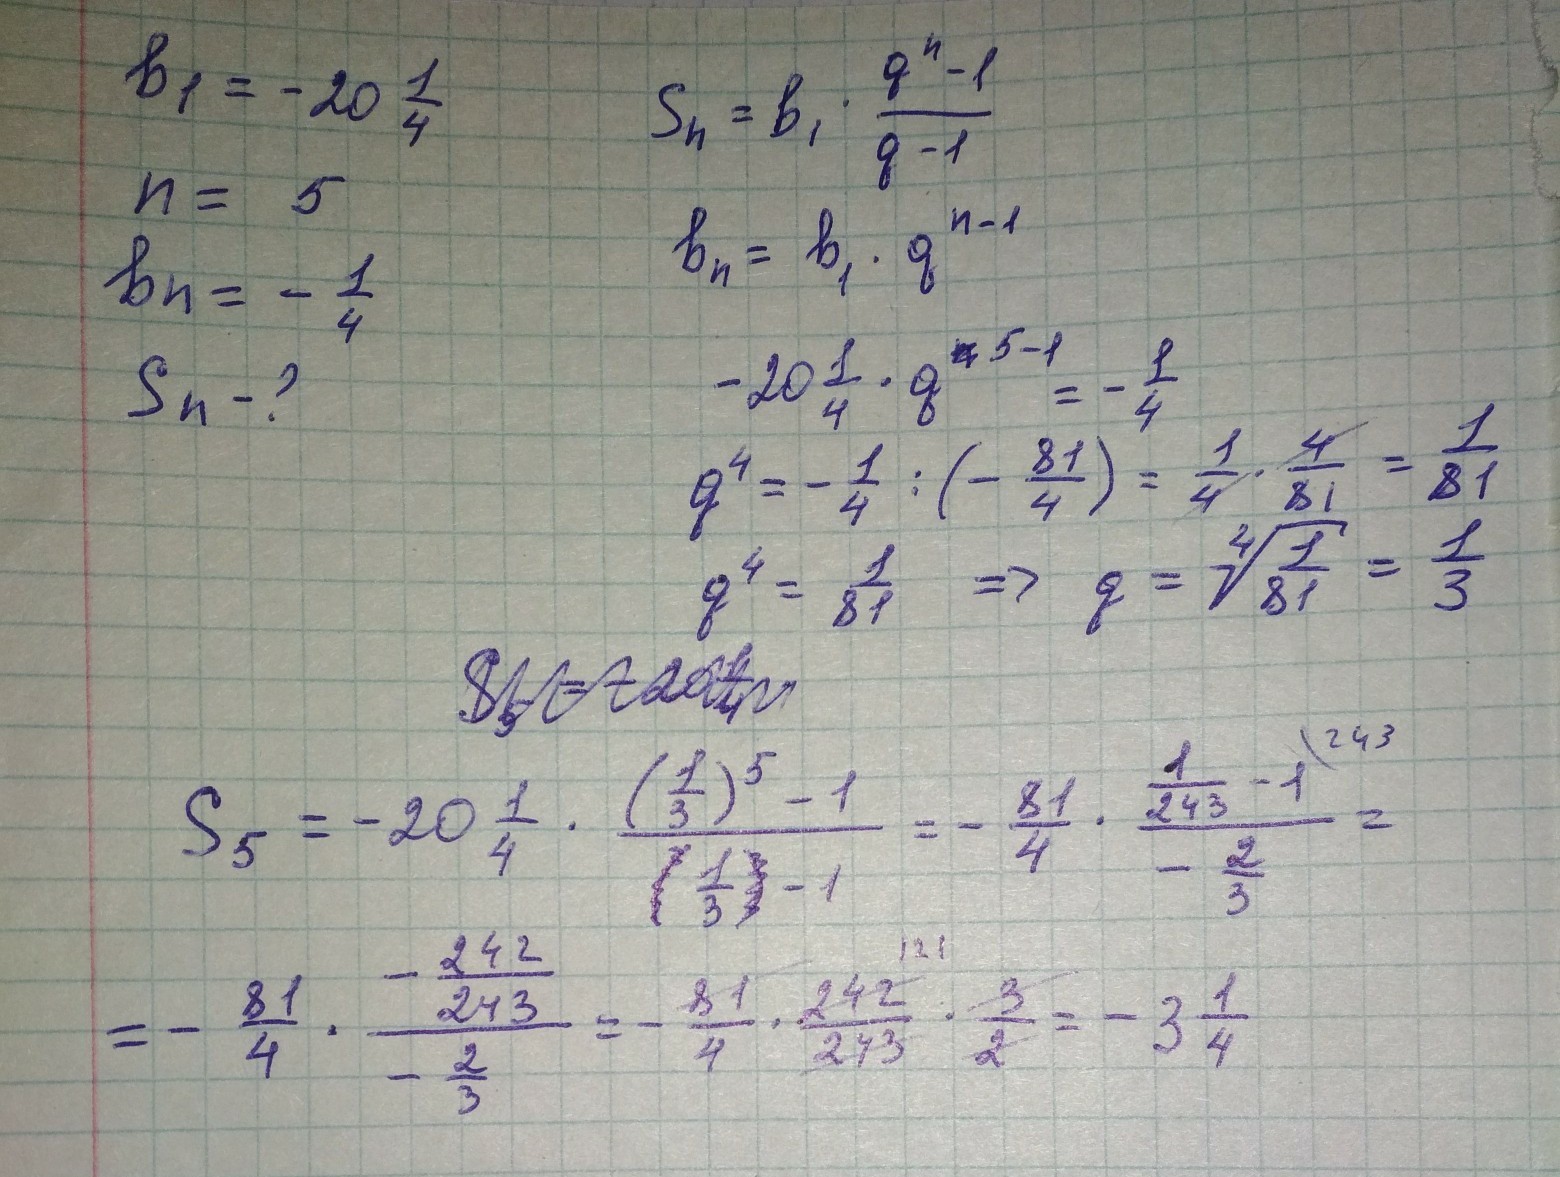 b₁ = -20 1/4
n = 5
bn = - 1/4
Sn - ?
Sn = b₁ · (qⁿ - 1)/(q - 1)
bn = b₁ · qⁿ⁻¹
-20 1/4 · q⁵⁻¹ = - 1/4
q⁴ = - 1/4 : (- 81/4) = 1/4 · 4/81 = 1/81
q⁴ = 1/81 => q = ⁴√(1/81) = 1/3
S₅ = -20 1/4 · ((1/3)⁵ - 1)/((1/3) - 1) = - 81/4 · (1/243 - 1\243)/(- 2/3) =
= - 81/4 · (- 242/243)/(- 2/3) = - 81/4 · 242/243 121 · 3/2 = - 3 1/4